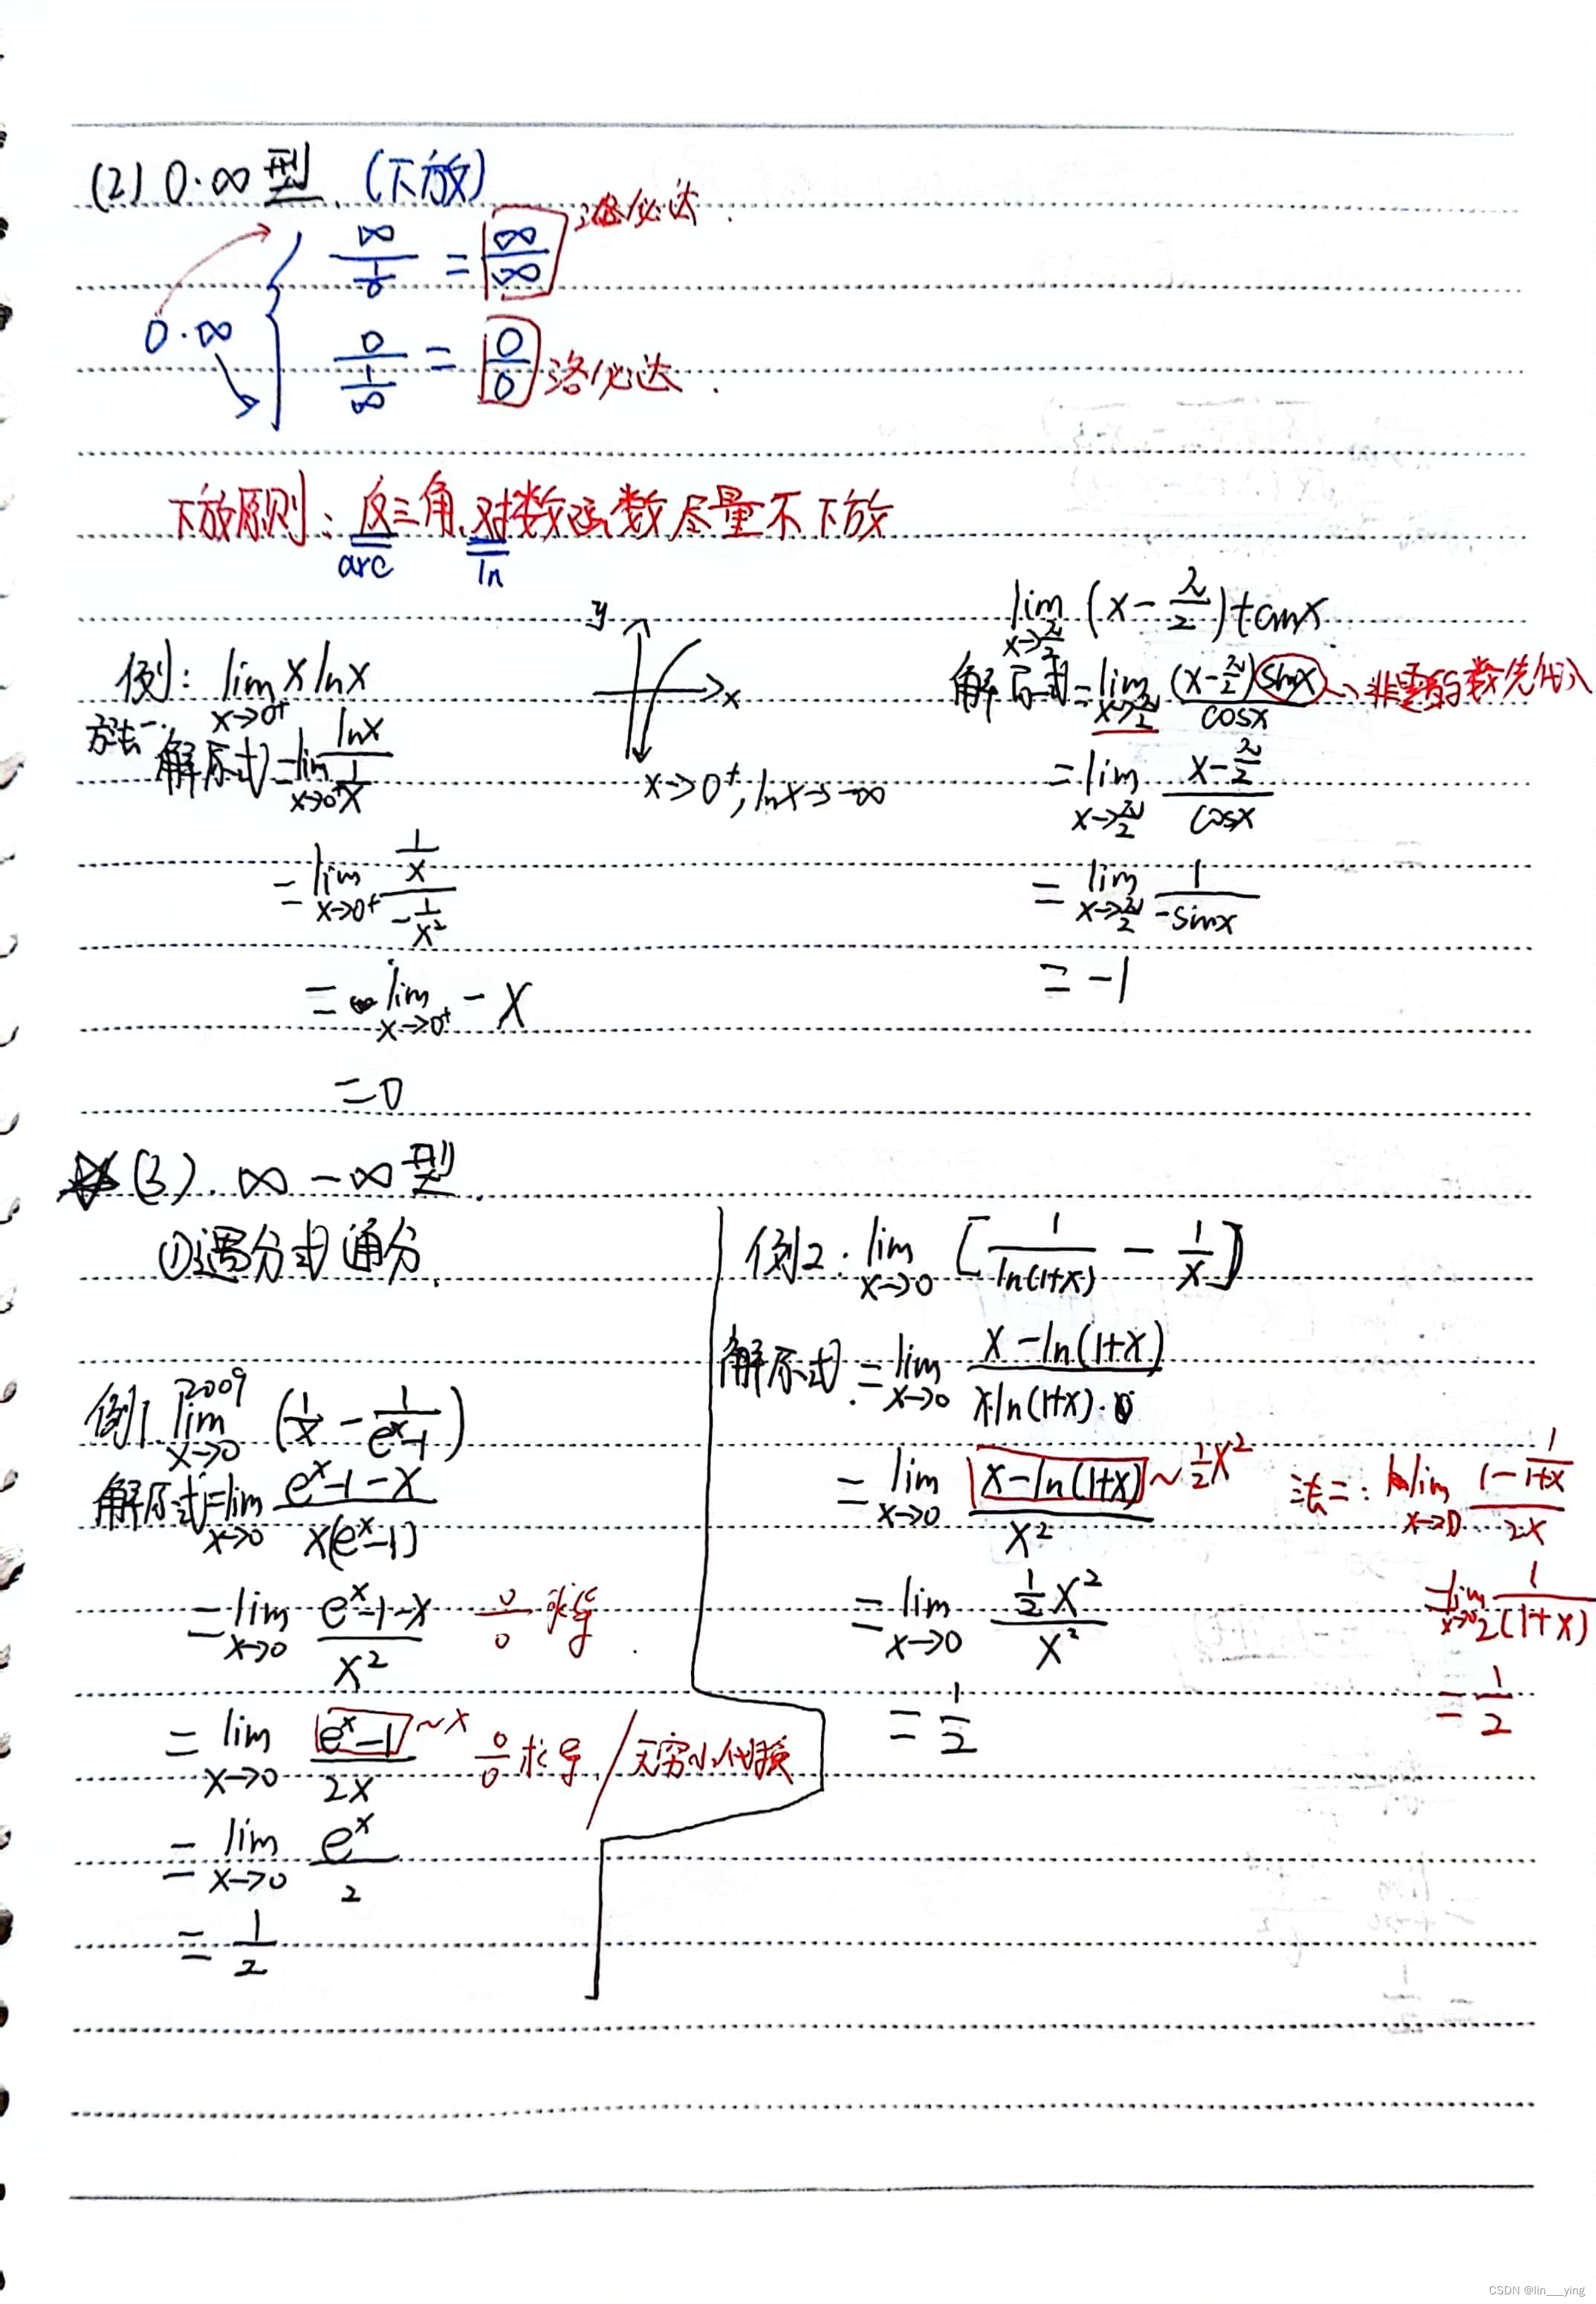 (2) 0·∞型 (下放)
0·∞ { ∞/(1/0) = ∞/∞ 洛必达.
0/(1/∞) = 0/0 洛必达.
下放原则: 反三角、对数函数尽量不下放
arc ln
例: lim x→0⁺ x lnx
方法一.
解原式 = lim x→0⁺ lnx/(1/x)
= lim x→0⁺ (1/x)/(-1/x²)
= lim x→0⁺ -x
= 0
y
x
x→0⁺, lnx→-∞
lim x→π/2 (x-π/2)tanx
解原式 = lim x→π/2 (x-π/2)sinx/cosx → 非零的数先代入
= lim x→π/2 (x-π/2)/cosx
= lim x→π/2 1/(-sinx)
= -1
(3). ∞-∞型.
①遇分式通分.
2009
例1 lim x→0 (1/x - 1/(eˣ-1))
解原式 = lim x→0 (eˣ-1-x)/(x(eˣ-1))
= lim x→0 (eˣ-1-x)/x² 0/0 求导.
= lim x→0 (eˣ-1)/2x ~x 0/0 求导 / 无穷小代换
= lim x→0 eˣ/2
= 1/2
例2: lim x→0 [1/ln(1+x) - 1/x]
解原式 = lim x→0 (x-ln(1+x))/(x·ln(1+x))
= lim x→0 (x-ln(1+x))/x² ~½x²
= lim x→0 ½x²/x²
= 1/2
法二: lim x→0 (1-1/(1+x))/2x
= lim x→0 1/(2(1+x))
= 1/2
CSDN @lin___ying